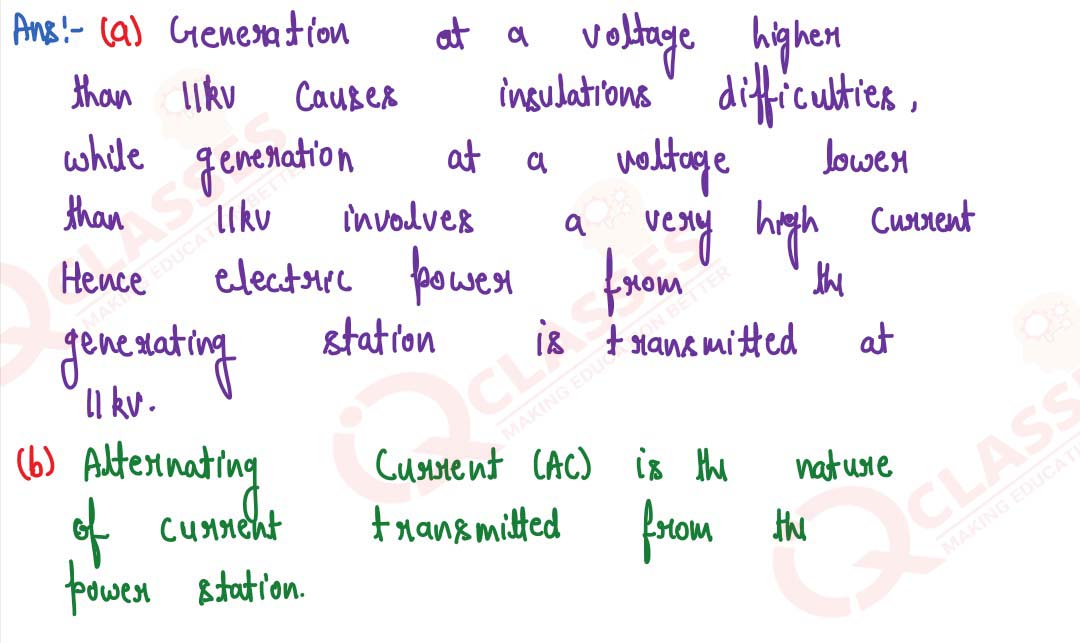 Ans:- (a) Generation at a voltage higher
than 11kv causes insulations difficulties,
while generation at a voltage lower
than 11kv involves a very high current
Hence electric power from the
generating station is transmitted at
11 kv.
(b) Alternating Current (AC) is the nature
of current transmitted from the
power station.
CLASSES
MAKING EDUCATION BETTER
iQ CLASSES
MAKING EDUCATION BETTER
iQ CLASSES
MAKING EDUCATI